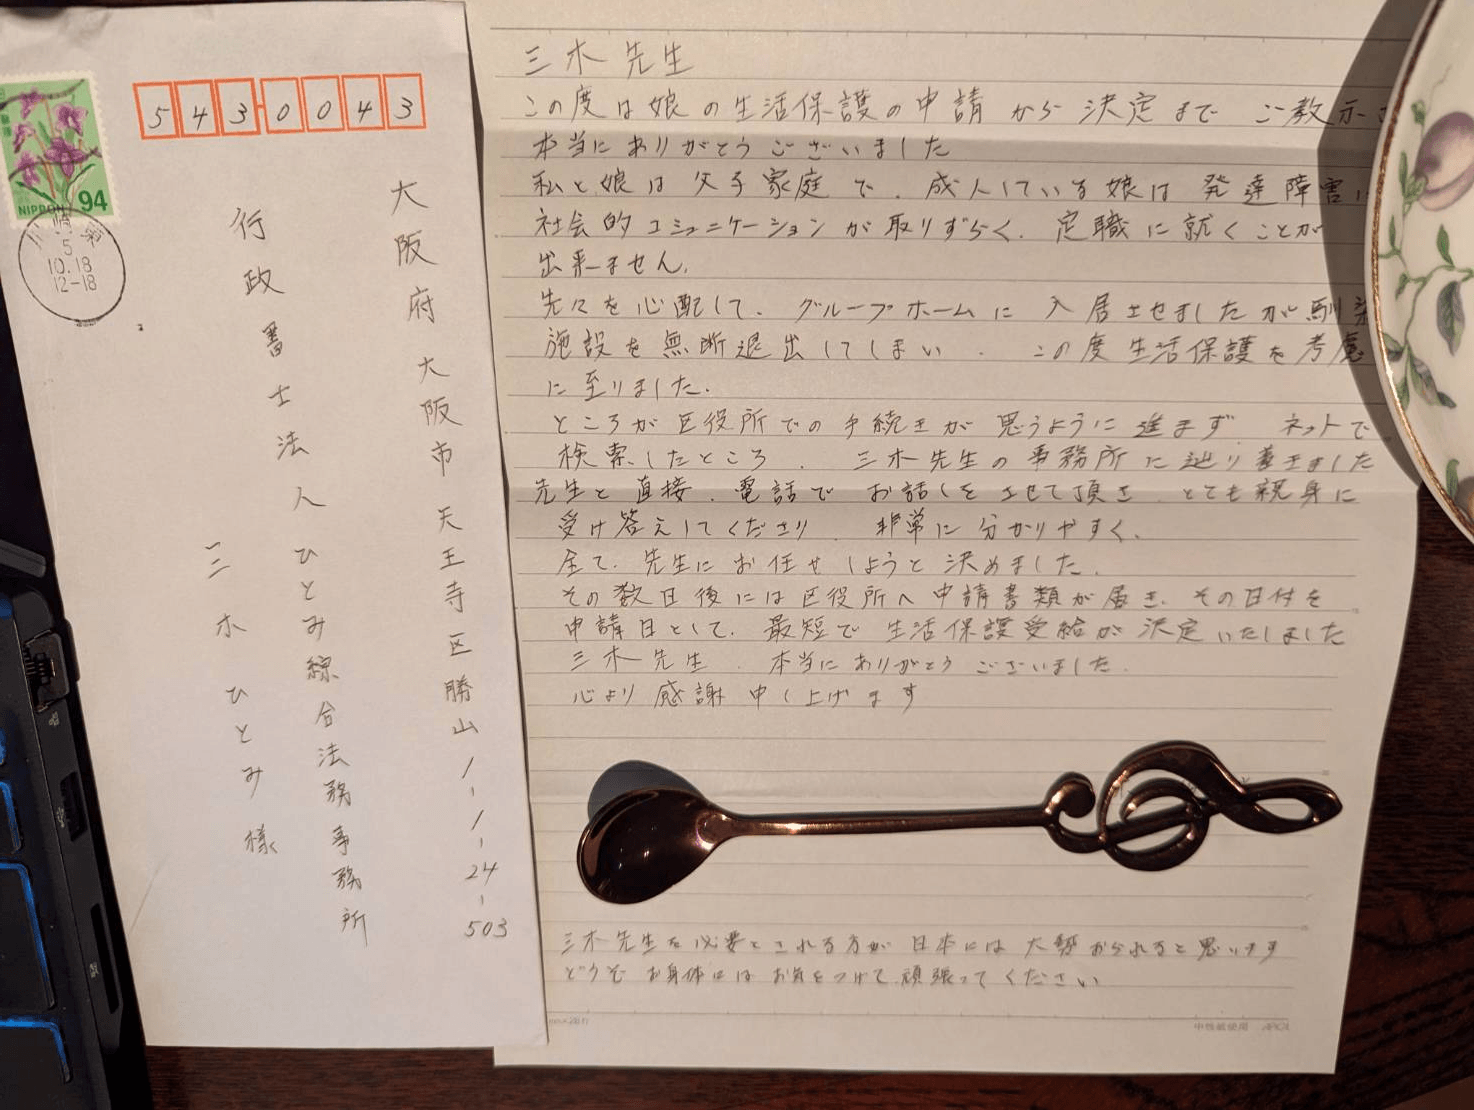 5430043
大阪府大阪市天王寺区勝山1-1-24-503
行政書士法人ひとみ綜合法務事務所
三木ひとみ様
NIPPON 94
崎
5
10.18
12-18
三木先生
この度は娘の生活保護の申請から決定までご教示
本当にありがとうございました
私と娘は父子家庭で、成人している娘は発達障害
社会的コミュニケーションが取りずらく、定職に就くことが
出来ません。
先々を心配して、グループホームに入居させましたが馴染
施設を無断退出してしまい、この度生活保護を考慮
に至りました。
ところが区役所での手続きが思うように進まず ネットで
検索したところ、三木先生の事務所に辿り着きました
先生と直接、電話でお話しをさせて頂き、とても親身に
受け答えしてくださり、非常に分かりやすく、
全て、先生にお任せしようと決めました。
その数日後には区役所へ申請書類が届き、その日付を
申請日として、最短で生活保護受給が決定いたしました
三木先生、本当にありがとうございました。
心より感謝申し上げます
三木先生を必要とされる方が日本には大勢おられると思います
どうぞお身体にはお気をつけて頑張ってください
中性紙使用 APICA